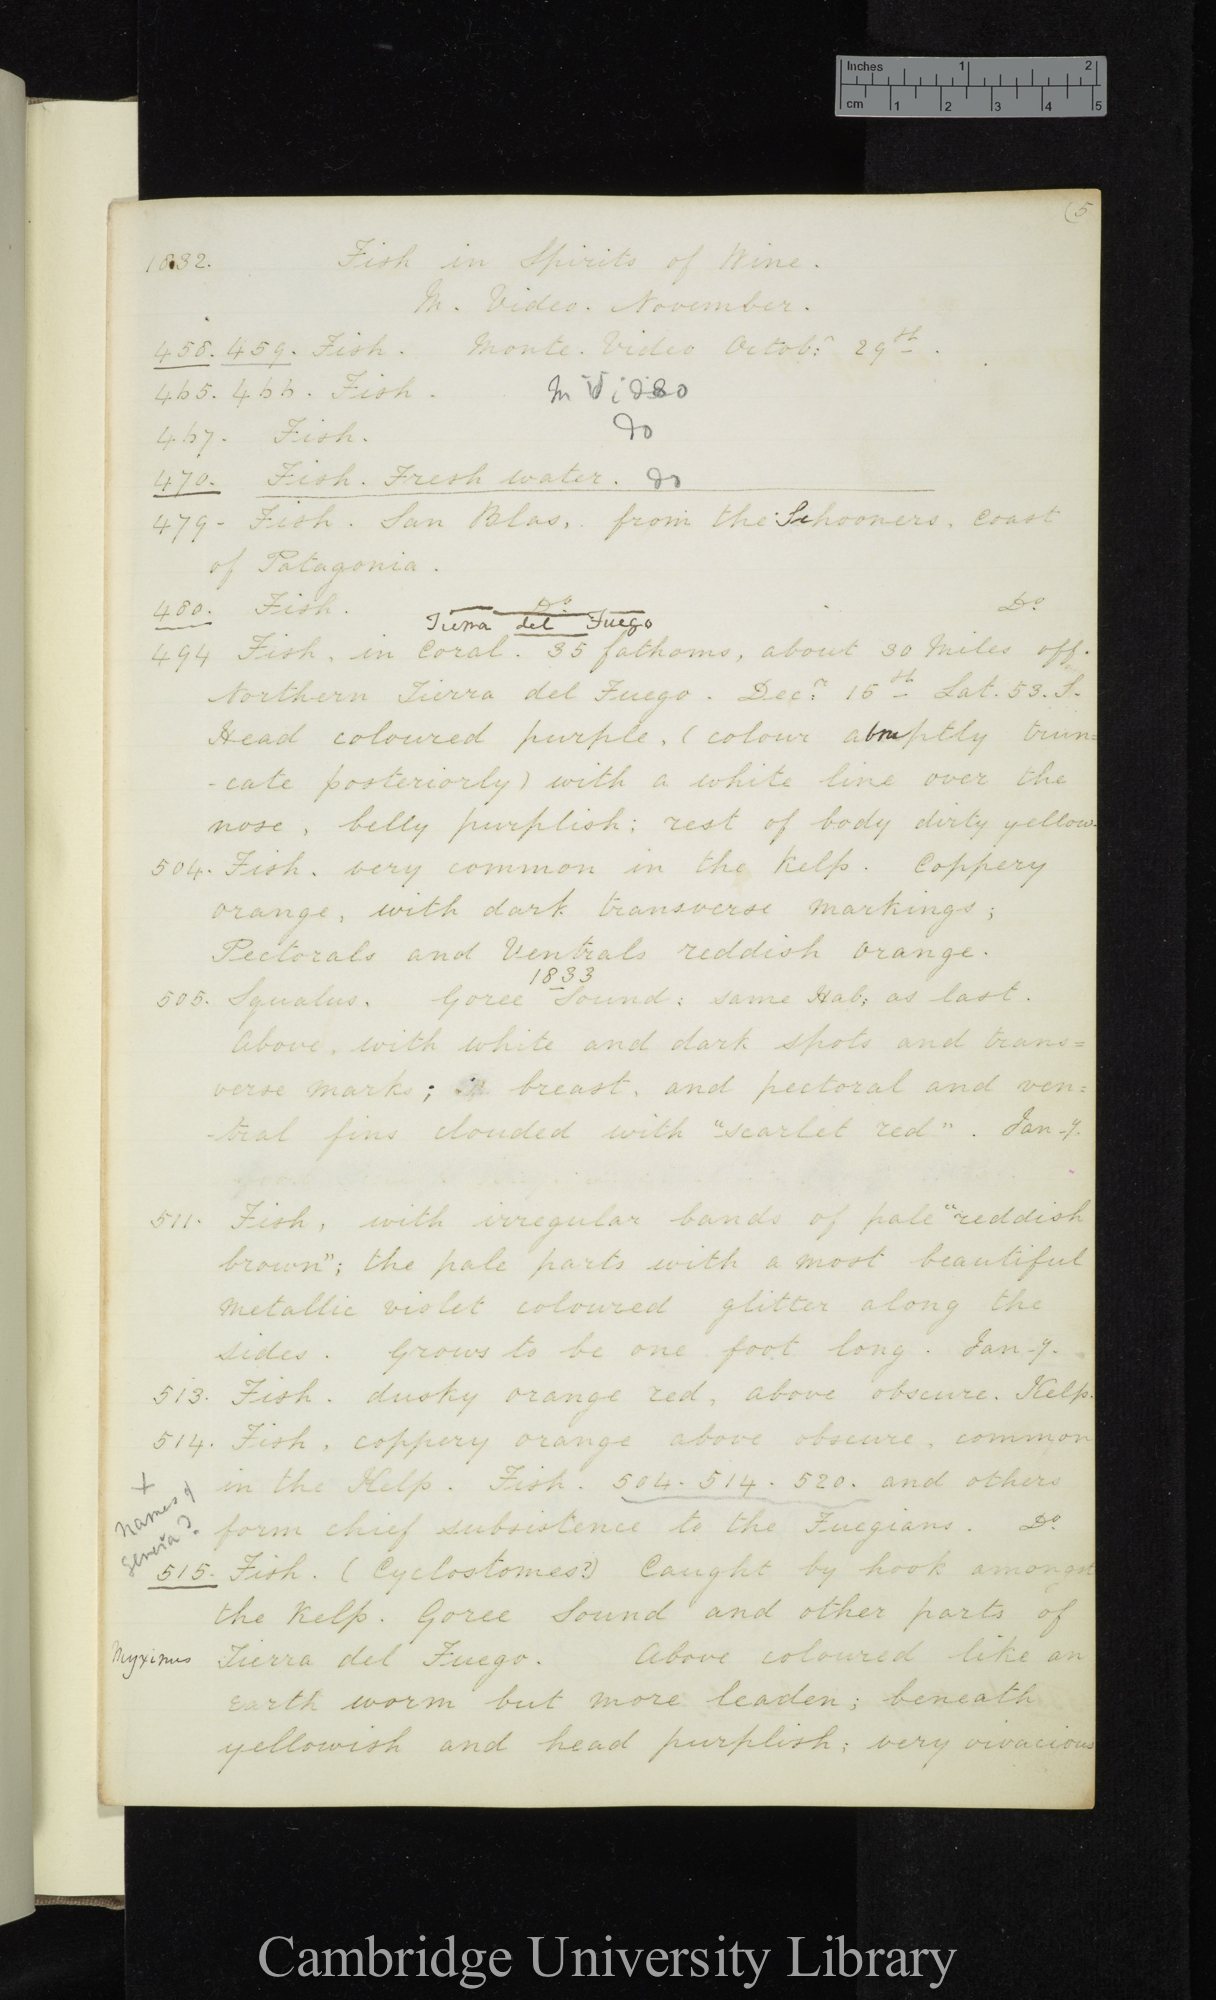 Inches 1 2
cm 1 2 3 4 5
(5
1832. Fish in Spirits of Wine.
M. Video. November.
458. 459. Fish. Monte. Video Octob:r 29th.
465. 466. Fish. M Video
467. Fish. do
470. Fish. Fresh water. do
479 - Fish. San Blas, from the Schooners, coast
of Patagonia.
480. Fish. Do Do
Tierra del Fuego
494 Fish, in Coral. 35 fathoms, about 30 Miles off.
Northern Tierra del Fuego. Dec:r 15th Lat. 53. S.
Head coloured purple, (colour abruptly trun=
-cate posteriorly) with a white line over the
nose, belly purplish; rest of body dirty yellow-
504. Fish. very common in the Kelp. Coppery
orange, with dark transverse markings;
Pectorals and Ventrals reddish orange.
1833
505. Squalus. Goree Sound: same Hab: as last.
Above, with white and dark spots and trans=
verse marks; breast, and pectoral and ven=
-tral fins clouded with "scarlet red". Jan-y.
511. Fish, with irregular bands of pale "reddish
brown"; the pale parts with a most beautiful
metallic violet coloured glitter along the
sides. Grows to be one foot long. Jan-y.
513. Fish. dusky orange red, above obscure. Kelp.
514. Fish, coppery orange above obscure, common
in the Kelp. Fish. 504. 514. 520. and others
+
Names of
Genera?
form chief subsistence to the Fuegians. Do
515. Fish. (Cyclostomes?) Caught by hook amongst
the Kelp. Goree Sound and other parts of
Myxinus Tierra del Fuego. Above coloured like an
Earth worm but more leaden; beneath
yellowish and head purplish; very vivacious
Cambridge University Library